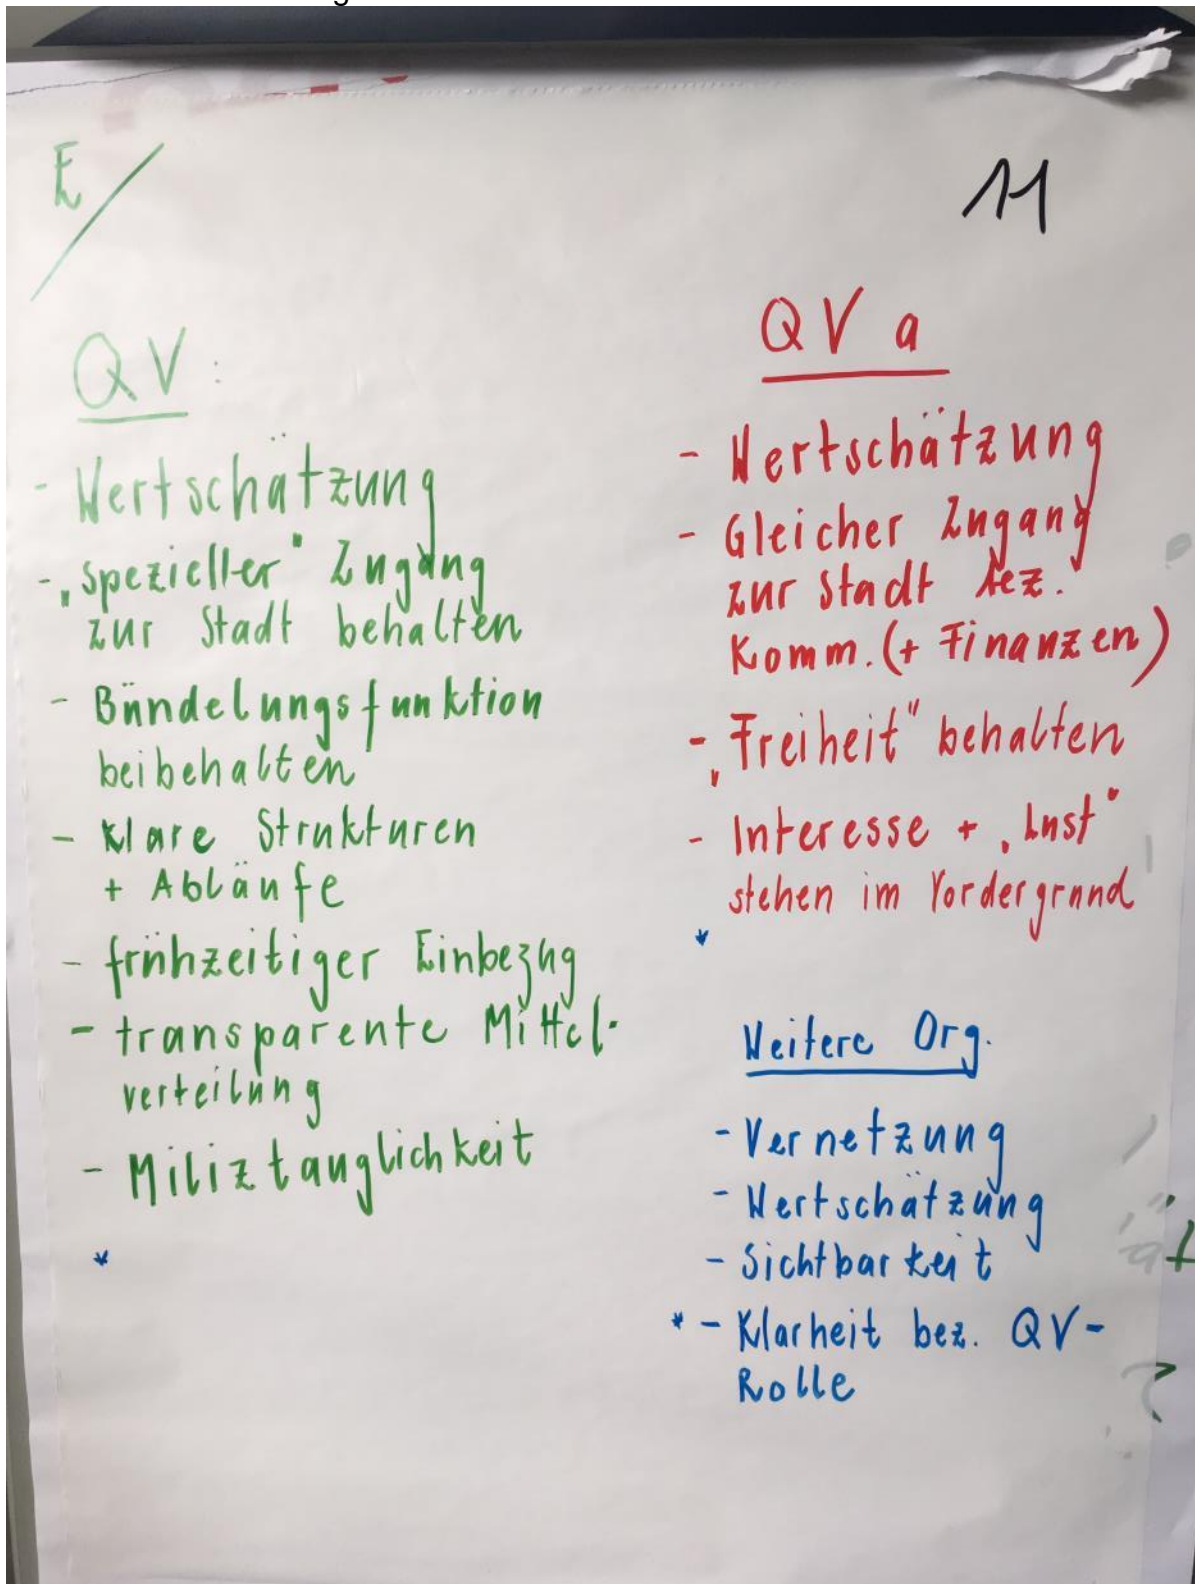 E/
11
QV:
- Wertschätzung
- „spezieller" Zugang
zur Stadt behalten
- Bündelungsfunktion
beibehalten
- Klare Strukturen
+ Abläufe
- frühzeitiger Einbezug
- transparente Mittel-
verteilung
- Miliztauglichkeit
*
QV a
- Wertschätzung
- Gleicher Zugang
zur Stadt bez.
Komm. (+ Finanzen)
- „Freiheit" behalten
- Interesse + „Lust"
stehen im Vordergrund
*
Weitere Org.
- Vernetzung
- Wertschätzung
- Sichtbarkeit
* - Klarheit bez. QV-
Rolle